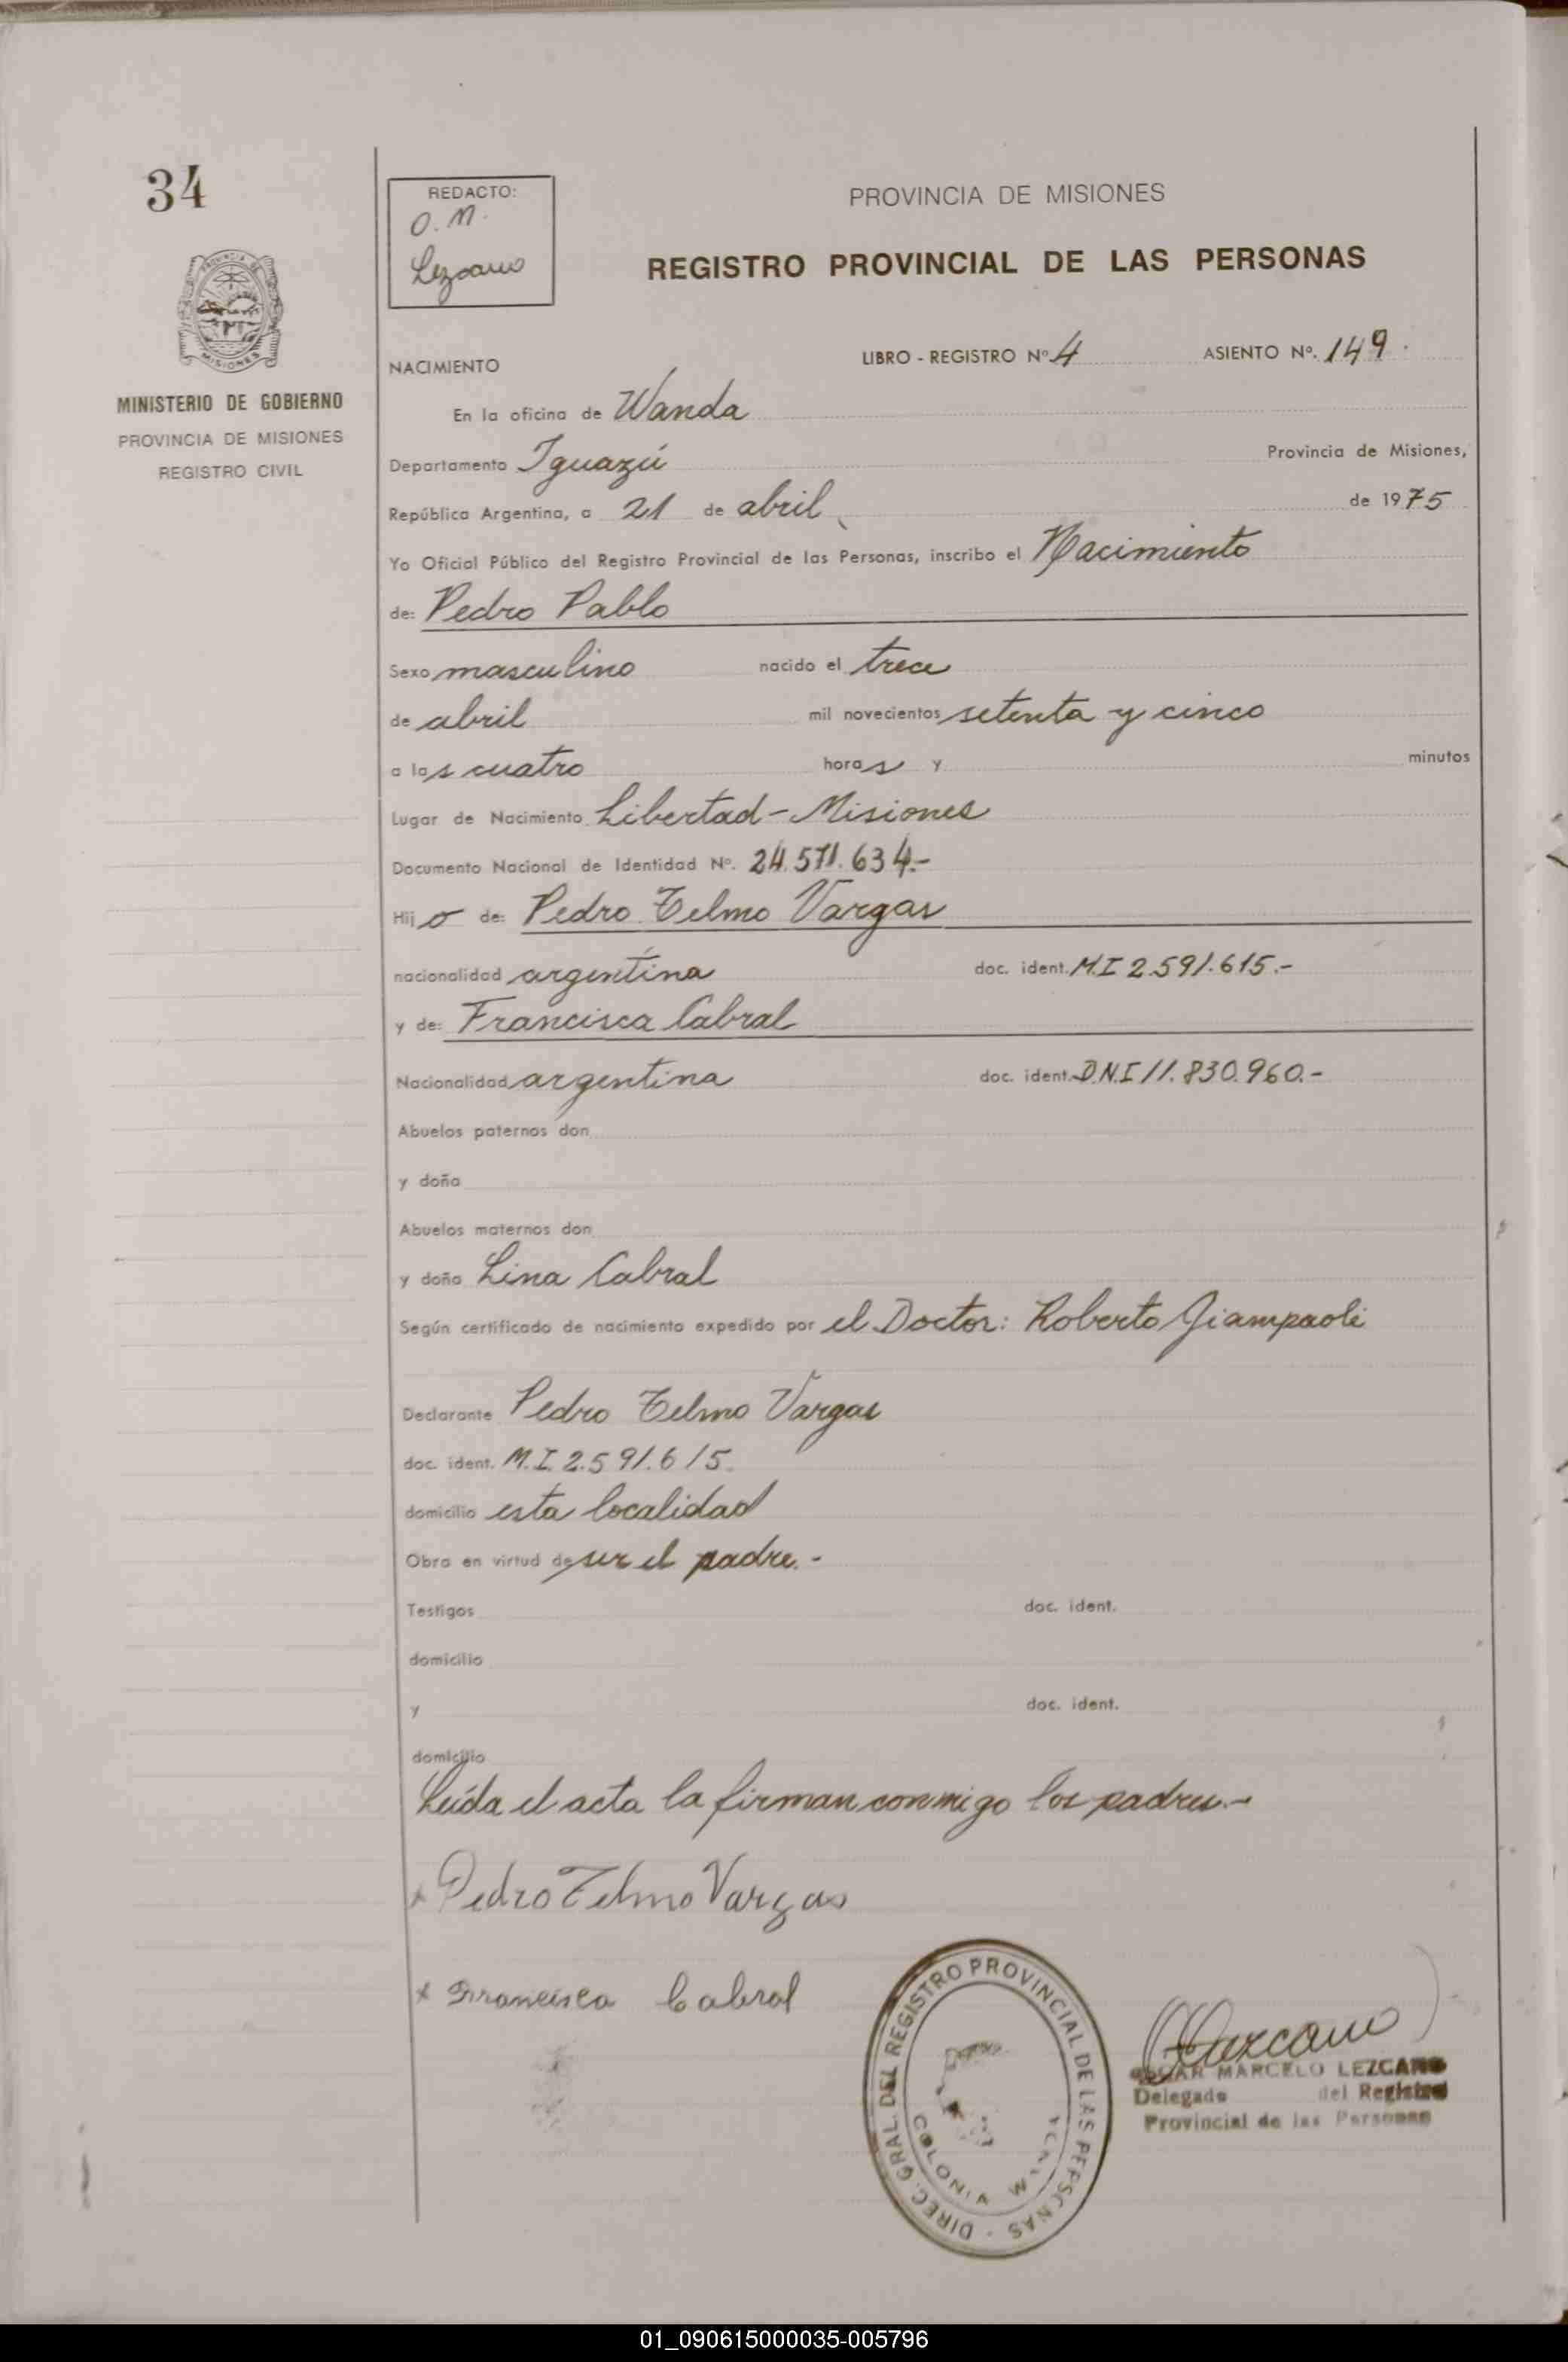 34
REDACTO:
O. M.
Lezcano
PROVINCIA DE MISIONES
REGISTRO PROVINCIAL DE LAS PERSONAS
MISIONES
MINISTERIO DE GOBIERNO
PROVINCIA DE MISIONES
REGISTRO CIVIL
NACIMIENTO LIBRO - REGISTRO Nº 4 ASIENTO Nº. 149.
En la oficina de Wanda
Departamento Iguazú Provincia de Misiones,
República Argentina, a 21 de abril, de 1975
Yo Oficial Público del Registro Provincial de las Personas, inscribo el Nacimiento
de: Pedro Pablo
Sexo masculino nacido el trece
de abril mil novecientos setenta y cinco
a las cuatro horas y minutos
Lugar de Nacimiento Libertad - Misiones
Documento Nacional de Identidad Nº. 24.571.634.-
Hijo de: Pedro Telmo Vargas
nacionalidad argentina doc. ident. M.I 2.591.615.-
y de: Francisca Cabral
Nacionalidad argentina doc. ident. D.N.I 11.830.960.-
Abuelos paternos don
y doña
Abuelos maternos don
y doña Lina Cabral
Según certificado de nacimiento expedido por el Doctor: Roberto Giampaoli
Declarante Pedro Telmo Vargas
doc. ident. M.I. 2.591.615.
domicilio esta localidad
Obra en virtud de ser el padre.-
Testigos doc. ident.
domicilio
y doc. ident.
domicilio
Leída el acta la firman conmigo los padres.-
x Pedro Telmo Vargas
x Francisca Cabral
DIREC. GRAL. DEL REGISTRO PROVINCIAL DE LAS PERSONAS
COLONIA WANDA
Lezcano
OSCAR MARCELO LEZCANO
Delegado del Registro
Provincial de las Personas
01_090615000035-005796